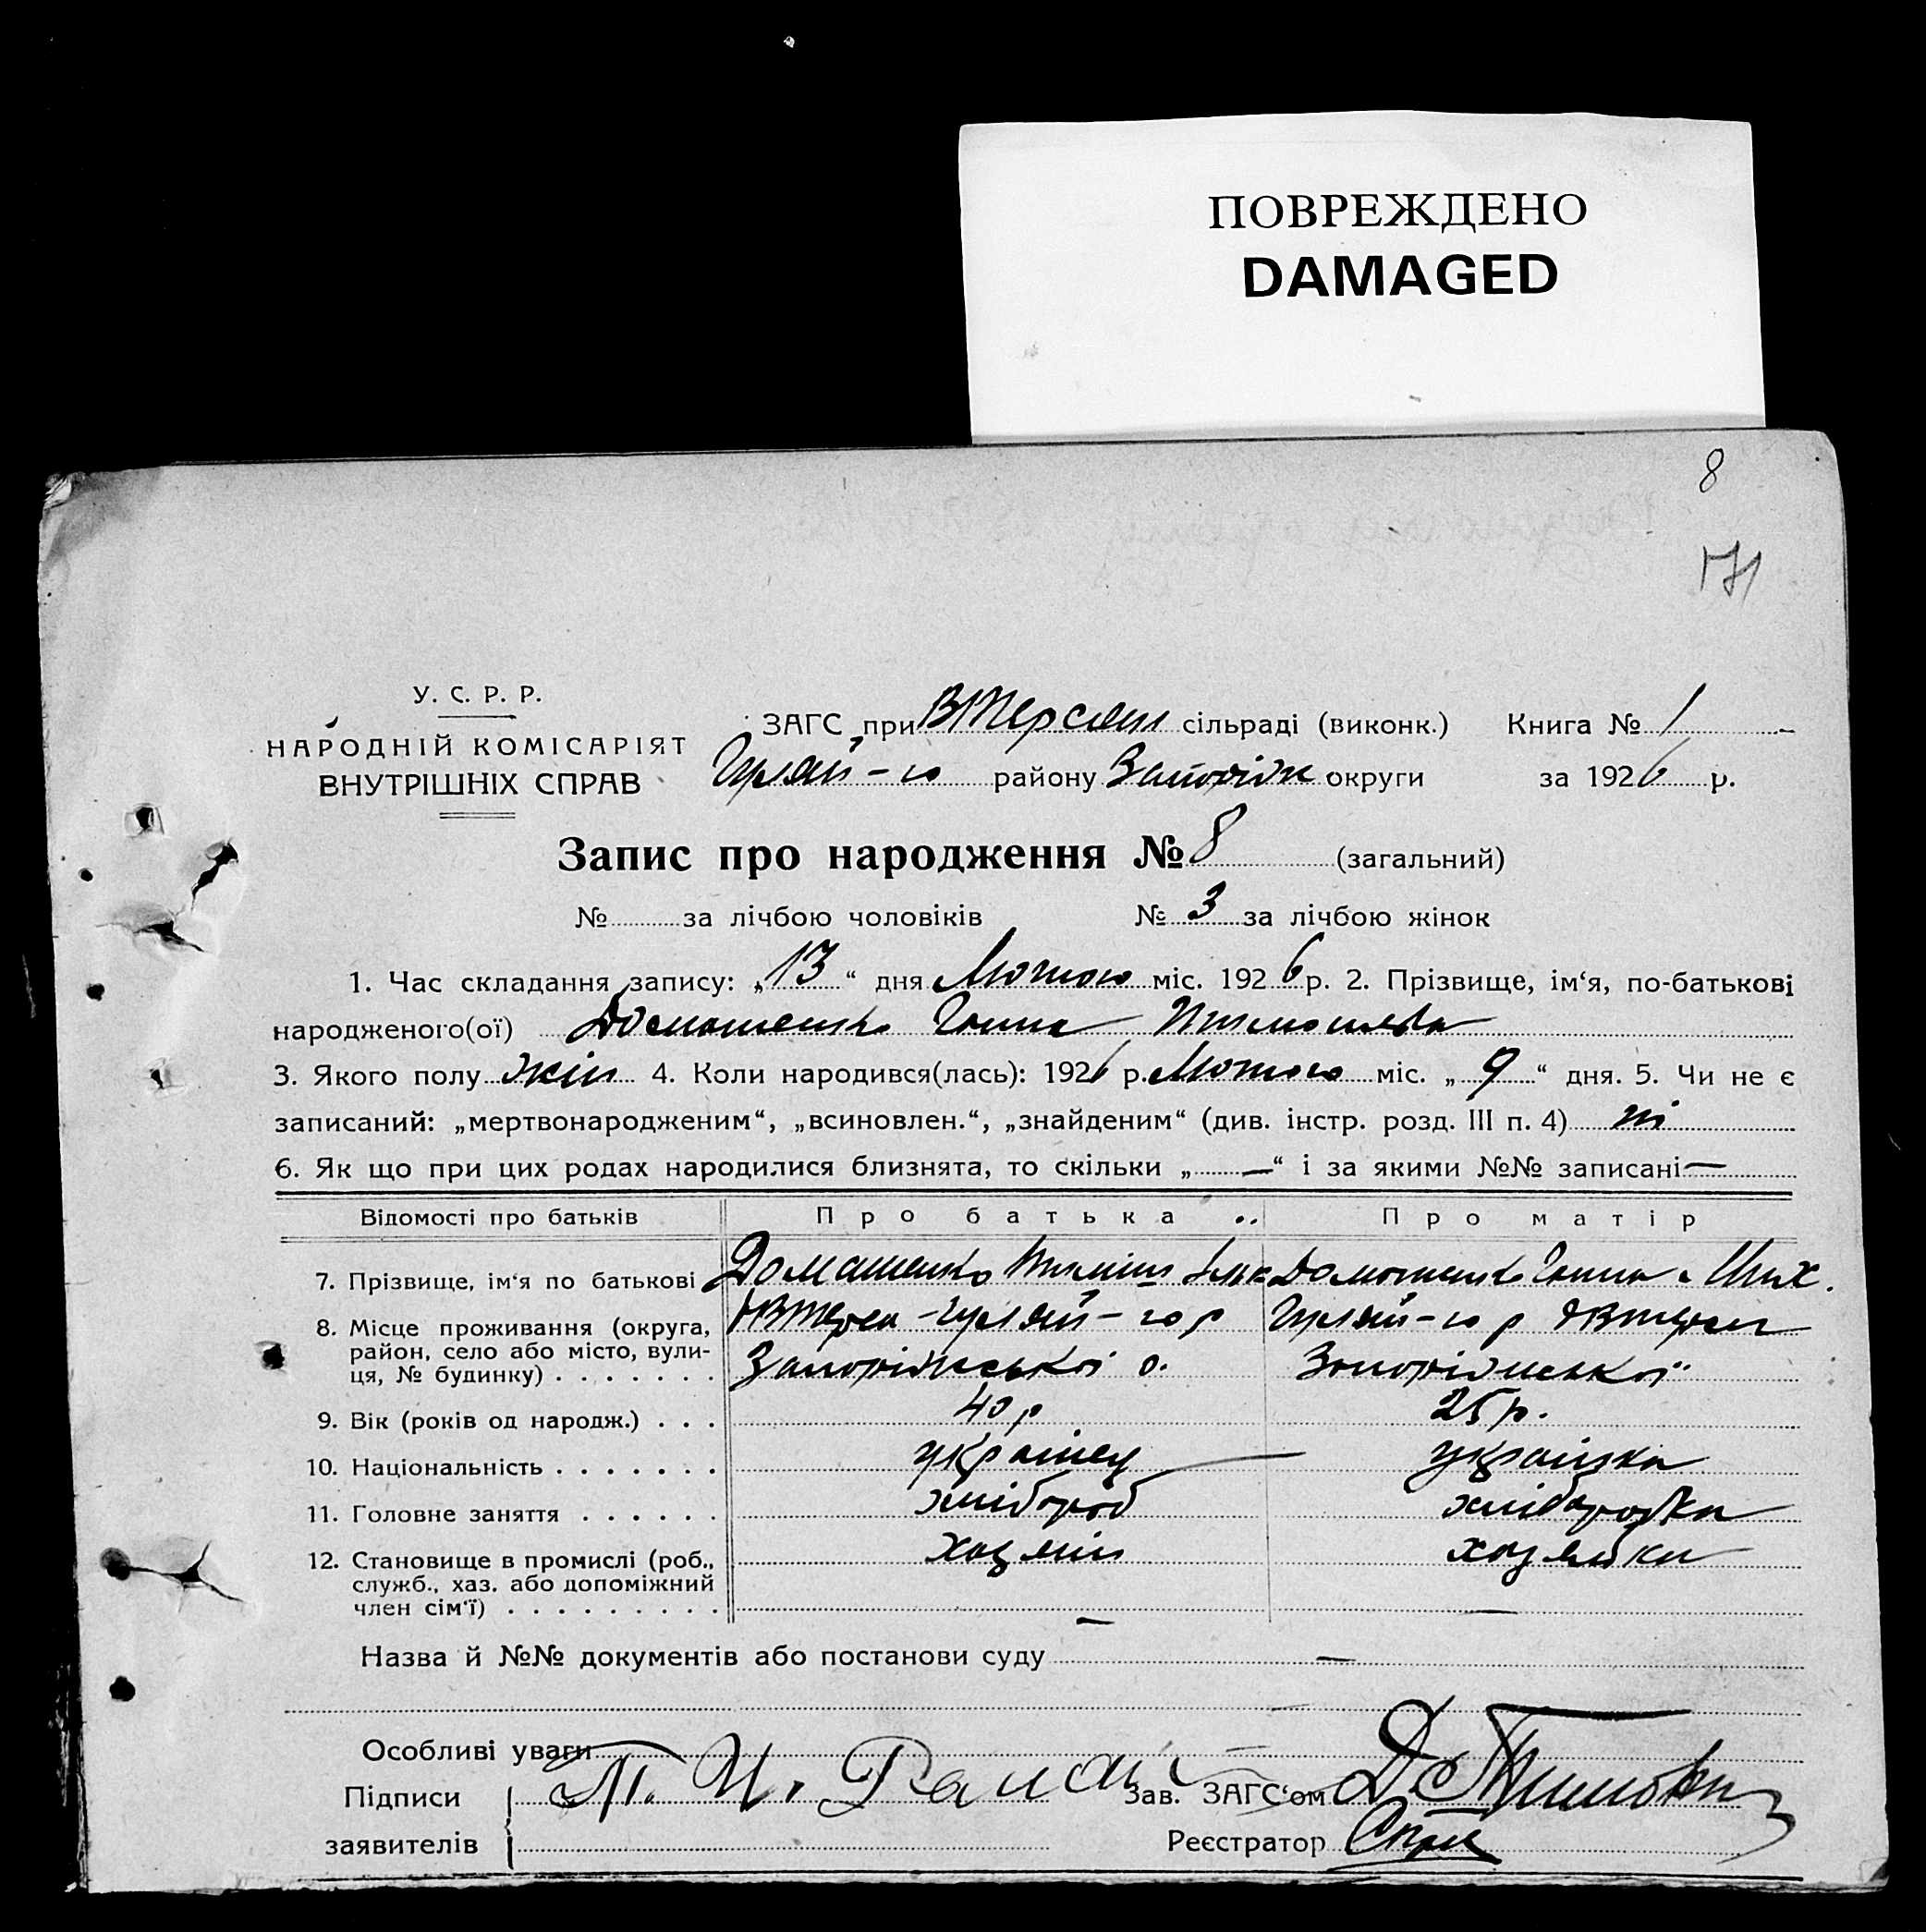 ПОВРЕЖДЕНО
DAMAGED
8
171
У. С. Р. Р.
НАРОДНІЙ КОМІСАРІЯТ
ВНУТРІШНІХ СПРАВ
ЗАГС при ВТерсян сільраді (виконк.) Книга № 1
Гуляй-го району Запоріж округи за 1926 р.
Запис про народження № 8 (загальний)
№ за лічбою чоловіків № 3 за лічбою жінок
1. Час складання запису: „13“ дня Лютого міс. 1926 р. 2. Прізвище, ім‘я, по-батькові
народженого(ої) Домашенко Ганна
3. Якого полу жін 4. Коли народився(лась): 1926 р. Лютого міс. „9“ дня. 5. Чи не є
записаний: „мертвонародженим“, „всиновлен.“, „знайденим“ (див. інстр. розд. III п. 4) ні
6. Як що при цих родах народилися близнята, то скільки „—“ і за якими №№ записані —
Відомості про батьків Про батька Про матір
7. Прізвище, ім‘я по батькові Домашенко Тиміш Домашенко Ганна Мих.
8. Місце проживання (округа, район, село або місто, вулиця, № будинку) . . . . . . .
Гуляй-го р Гуляй-го р
Запоріжської о. Запоріжської
9. Вік (років од народж.) . . . 40 р 25 р.
10. Національність . . . . . . . українец українка
11. Головне заняття . . . . . . хлібороб хліборобка
12. Становище в промислі (роб., служб., хаз. або допоміжний член сім‘ї) . . . . . . . . . хазяїн хазяйка
— —
Назва й №№ документів або постанови суду —
Особливі уваги
Підписи Т. И. Зав. ЗАГС‘ом
заявителів Реєстратор